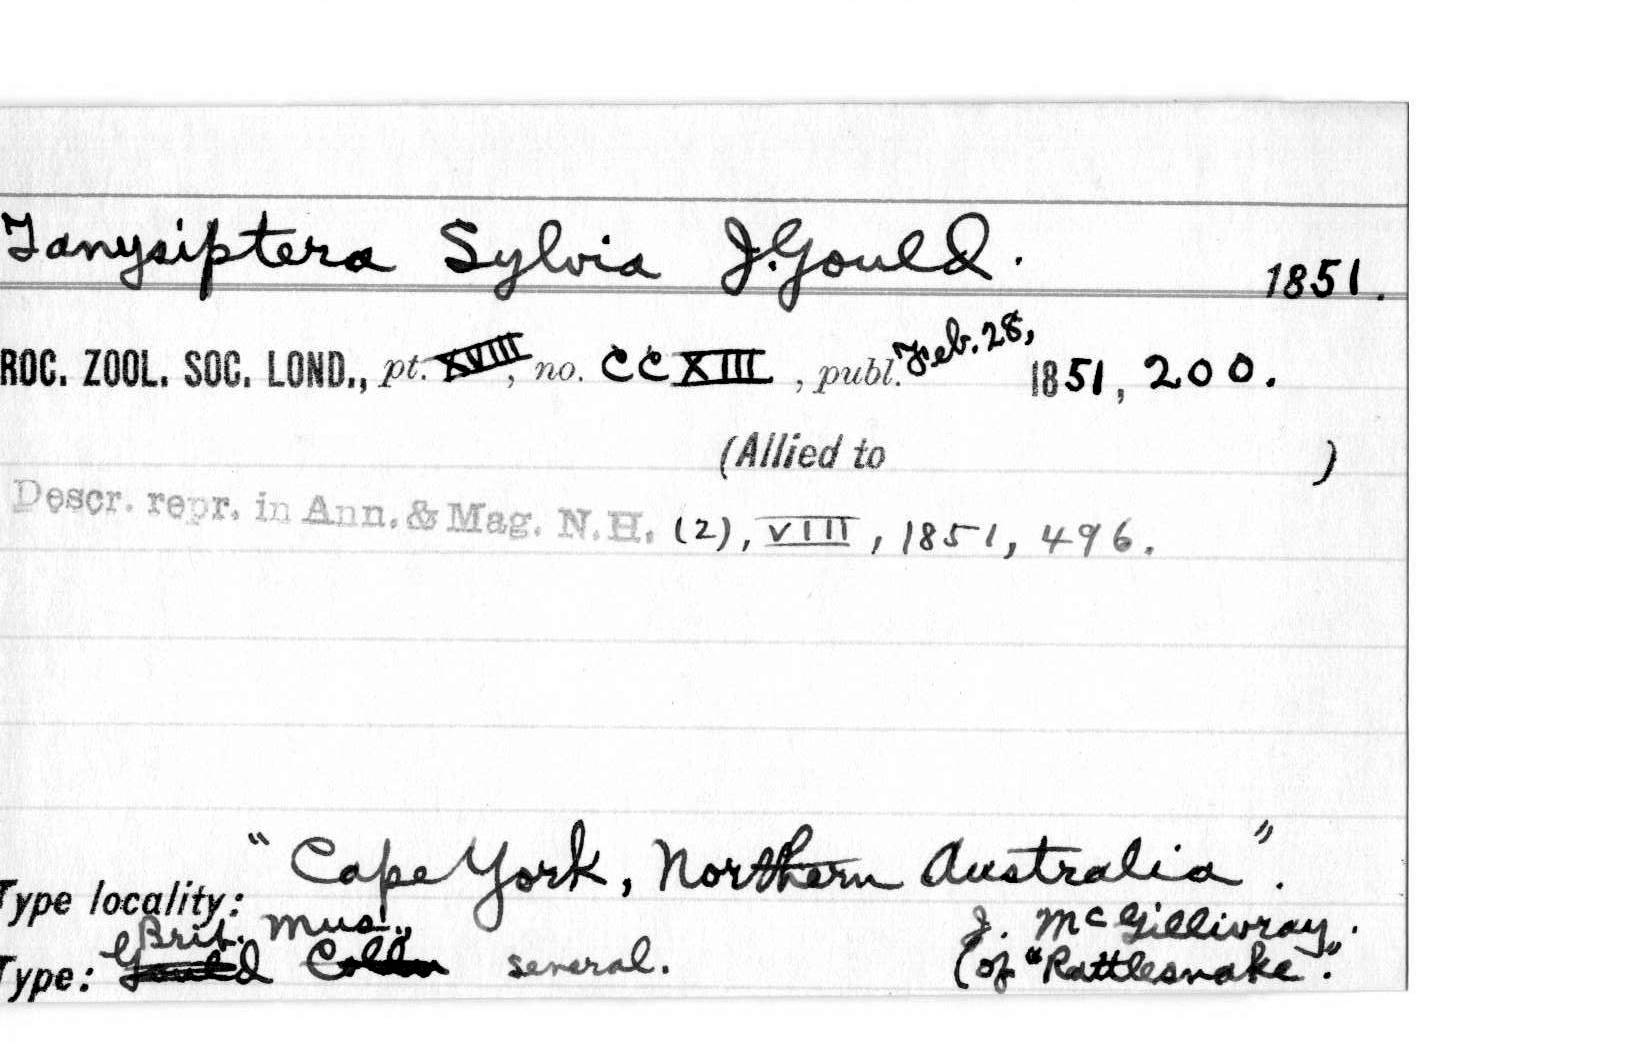 Tanysiptera Sylvia J. Gould. 1851.
ROC. ZOOL. SOC. LOND., pt. XVIII, no. CCXIII, publ. Feb. 28, 1851, 200.
(Allied to )
Descr. repr. in Ann. & Mag. N.H. (2), VIII, 1851, 496.
"Cape York, Northern Australia".
Type locality:
Brit. Mus., J. McGillivray.
Type: Gould Colln several. (of "Rattlesnake".